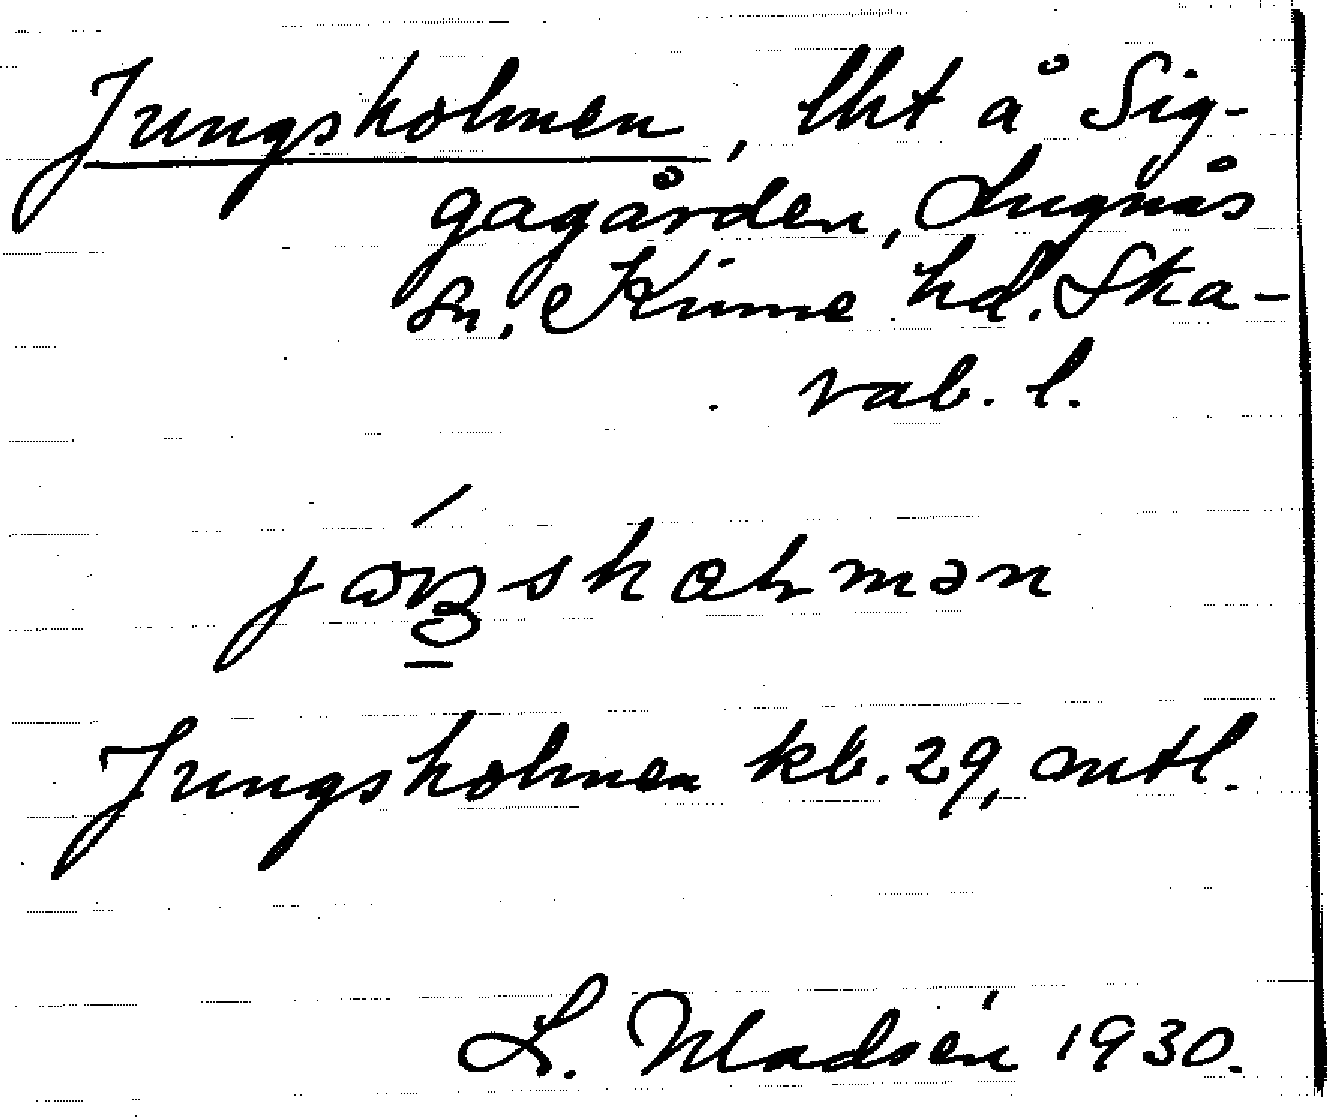 Jungsholmen, lht å Sig-
gagården, Lugnås
sn, Kinne hd. Ska-
rab. l.
Jungsholmen kb. 29, mtl.
L. Madsén 1930.